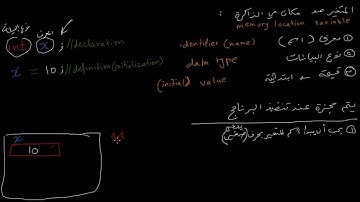 المتغير هو مكان في الذاكرة :
memory location variable
نوع البيانات
int x ; //declaration
identifier (name)
معرف ( اسم )
x = 10 ; //definition(initialization)
data type
نوع البيانات
(initial) value
قيمة ابتدائية
يتم حجزه عند تنفيذ البرنامج
يجب أن يبدأ اسم المتغير بحرف
x
10